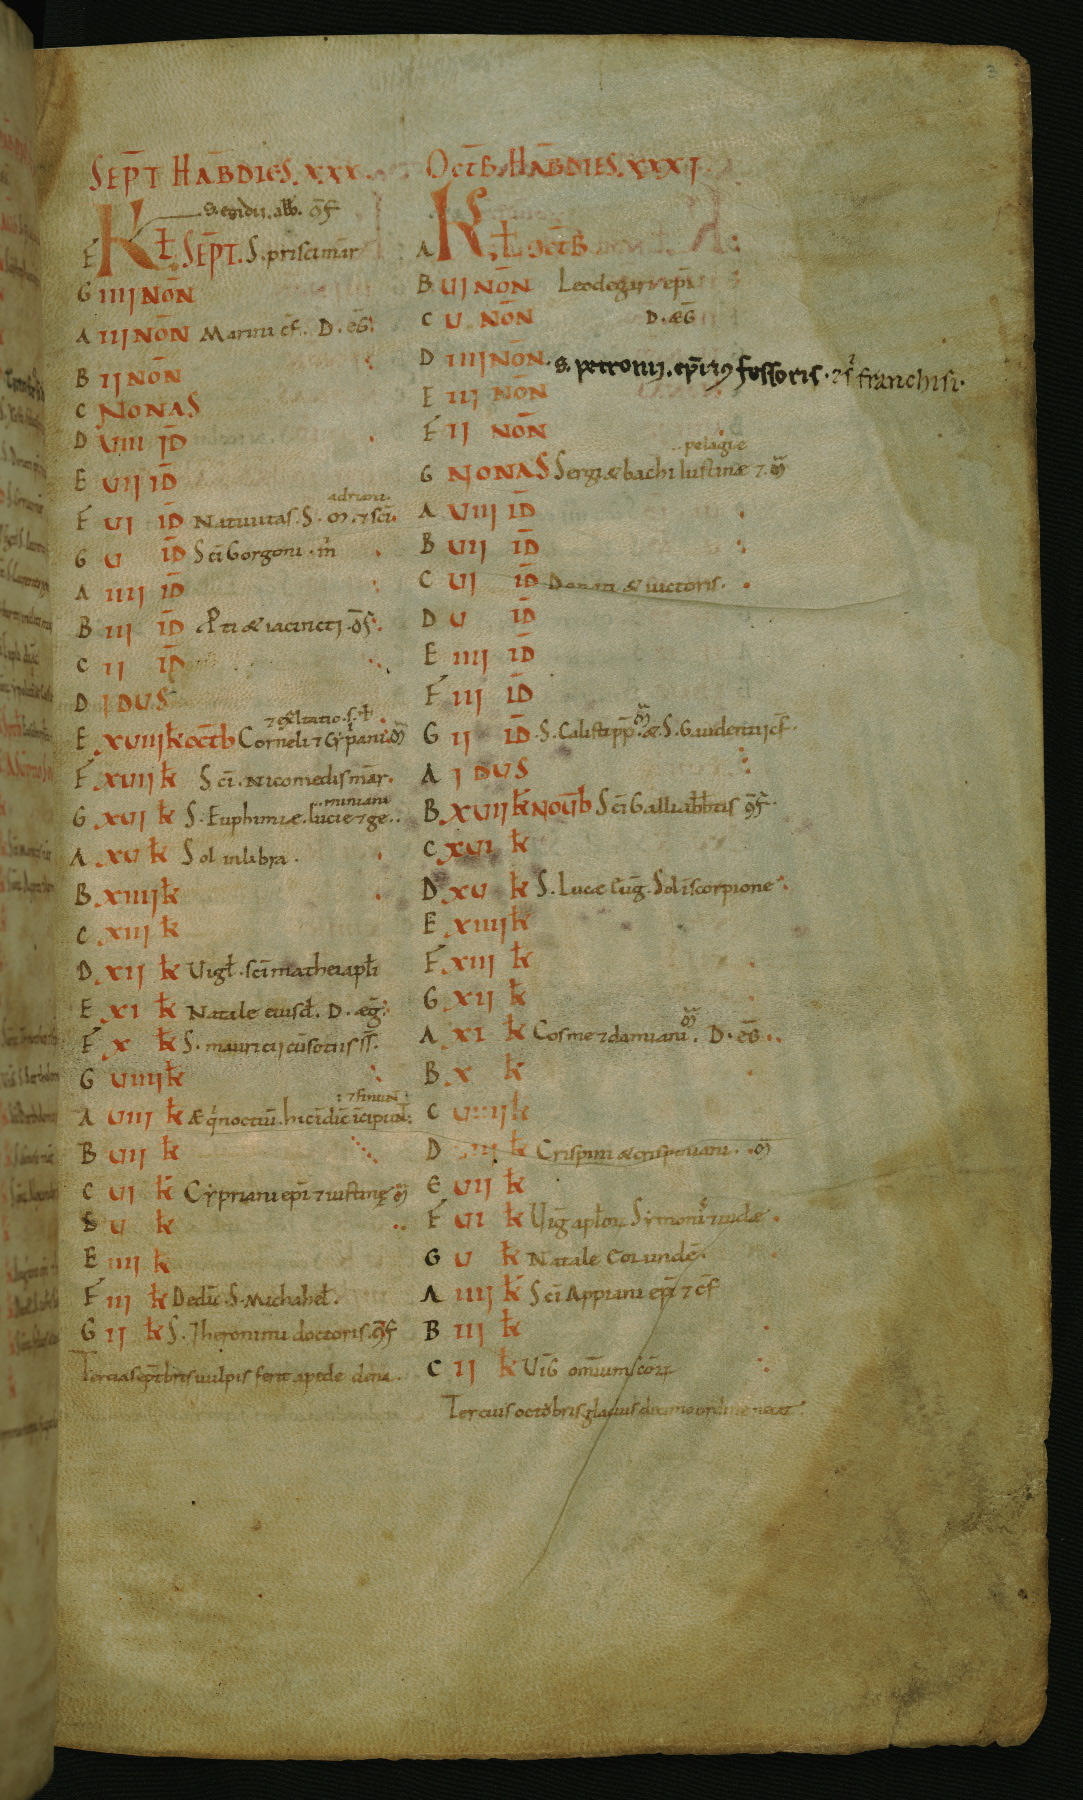 3
SEPT HABDIES. XXX.
S. egidii. abb. cf
F KL SEPT. S. prisci mar
G IIII NON
A III NON Marini cf. D. eG
B II NON
C NONAS
D VIII ID
E VII ID
adriani.
F VI ID Natiuitas. S. M. 7 sci.
G V ID Sci Gorgoni. m
A IIII ID
B III ID Proti & iacincti. M
C II ID
D IDUS
7 exaltatio. S. +
E XVIII k octb Corneli 7 Cypriani M
F XVII k Sci. Nicomedis mar.
miniani
G XVI k S. Euphimiae. lucie 7 ge..
A XV k Sol in libra.
B XIIII k
C XIII k
D XII k Uigl. sci mathei apli
E XI k Natale eiusd. D. æg
F X k S. mauricii cu sociis ss.
G VIIII k
7 finiun
A VIII k Æqinoctiu. hic dies icipiunt
B VII k
C VI k Cypriani epi 7 iustinę M
D V k
E IIII k
F III k Dedic. S. Michahel.
G II k S. Iheronimi doctoris. cf
Tercia septbris uulpis ferit a pede dena.
OCTB. HABDIES. XXXI
A KL OCTB
B VI NON Leodegarii epi
C V NON D. æG
D IIII NON. S. petronij. epi 7 9fessoris. 7 s franchisi.
E III NON
F II NON
pelagie
G NONAS Sergi & bachi Iustinæ 7 M
A VIII ID
B VII ID
C VI ID Donati & uictoris.
D V ID
E IIII ID
F III ID
G II ID. S. Calisti pp. M &. S. Gaudentii cf.
A IDUS
B XVII k NOUB Sci Galli abbatis 9f.
C XVI k
D XV k S. Lucæ Eug. Sol i scorpione
E XIIII k
F XIII k
G XII k
A XI k Cosme 7 damiani. M D. eG
B X k
C VIIII k
D VIII k Crispini & crispiniani. M
E VII k
F VI k Uig aploru Symonis 7 iudæ.
G V k Natale Eorunde.
A IIII k Sci Appiani epi 7 cf
B III k
C II k UiG omium scoru
Tercius octobris gladius decimo ordine nectit